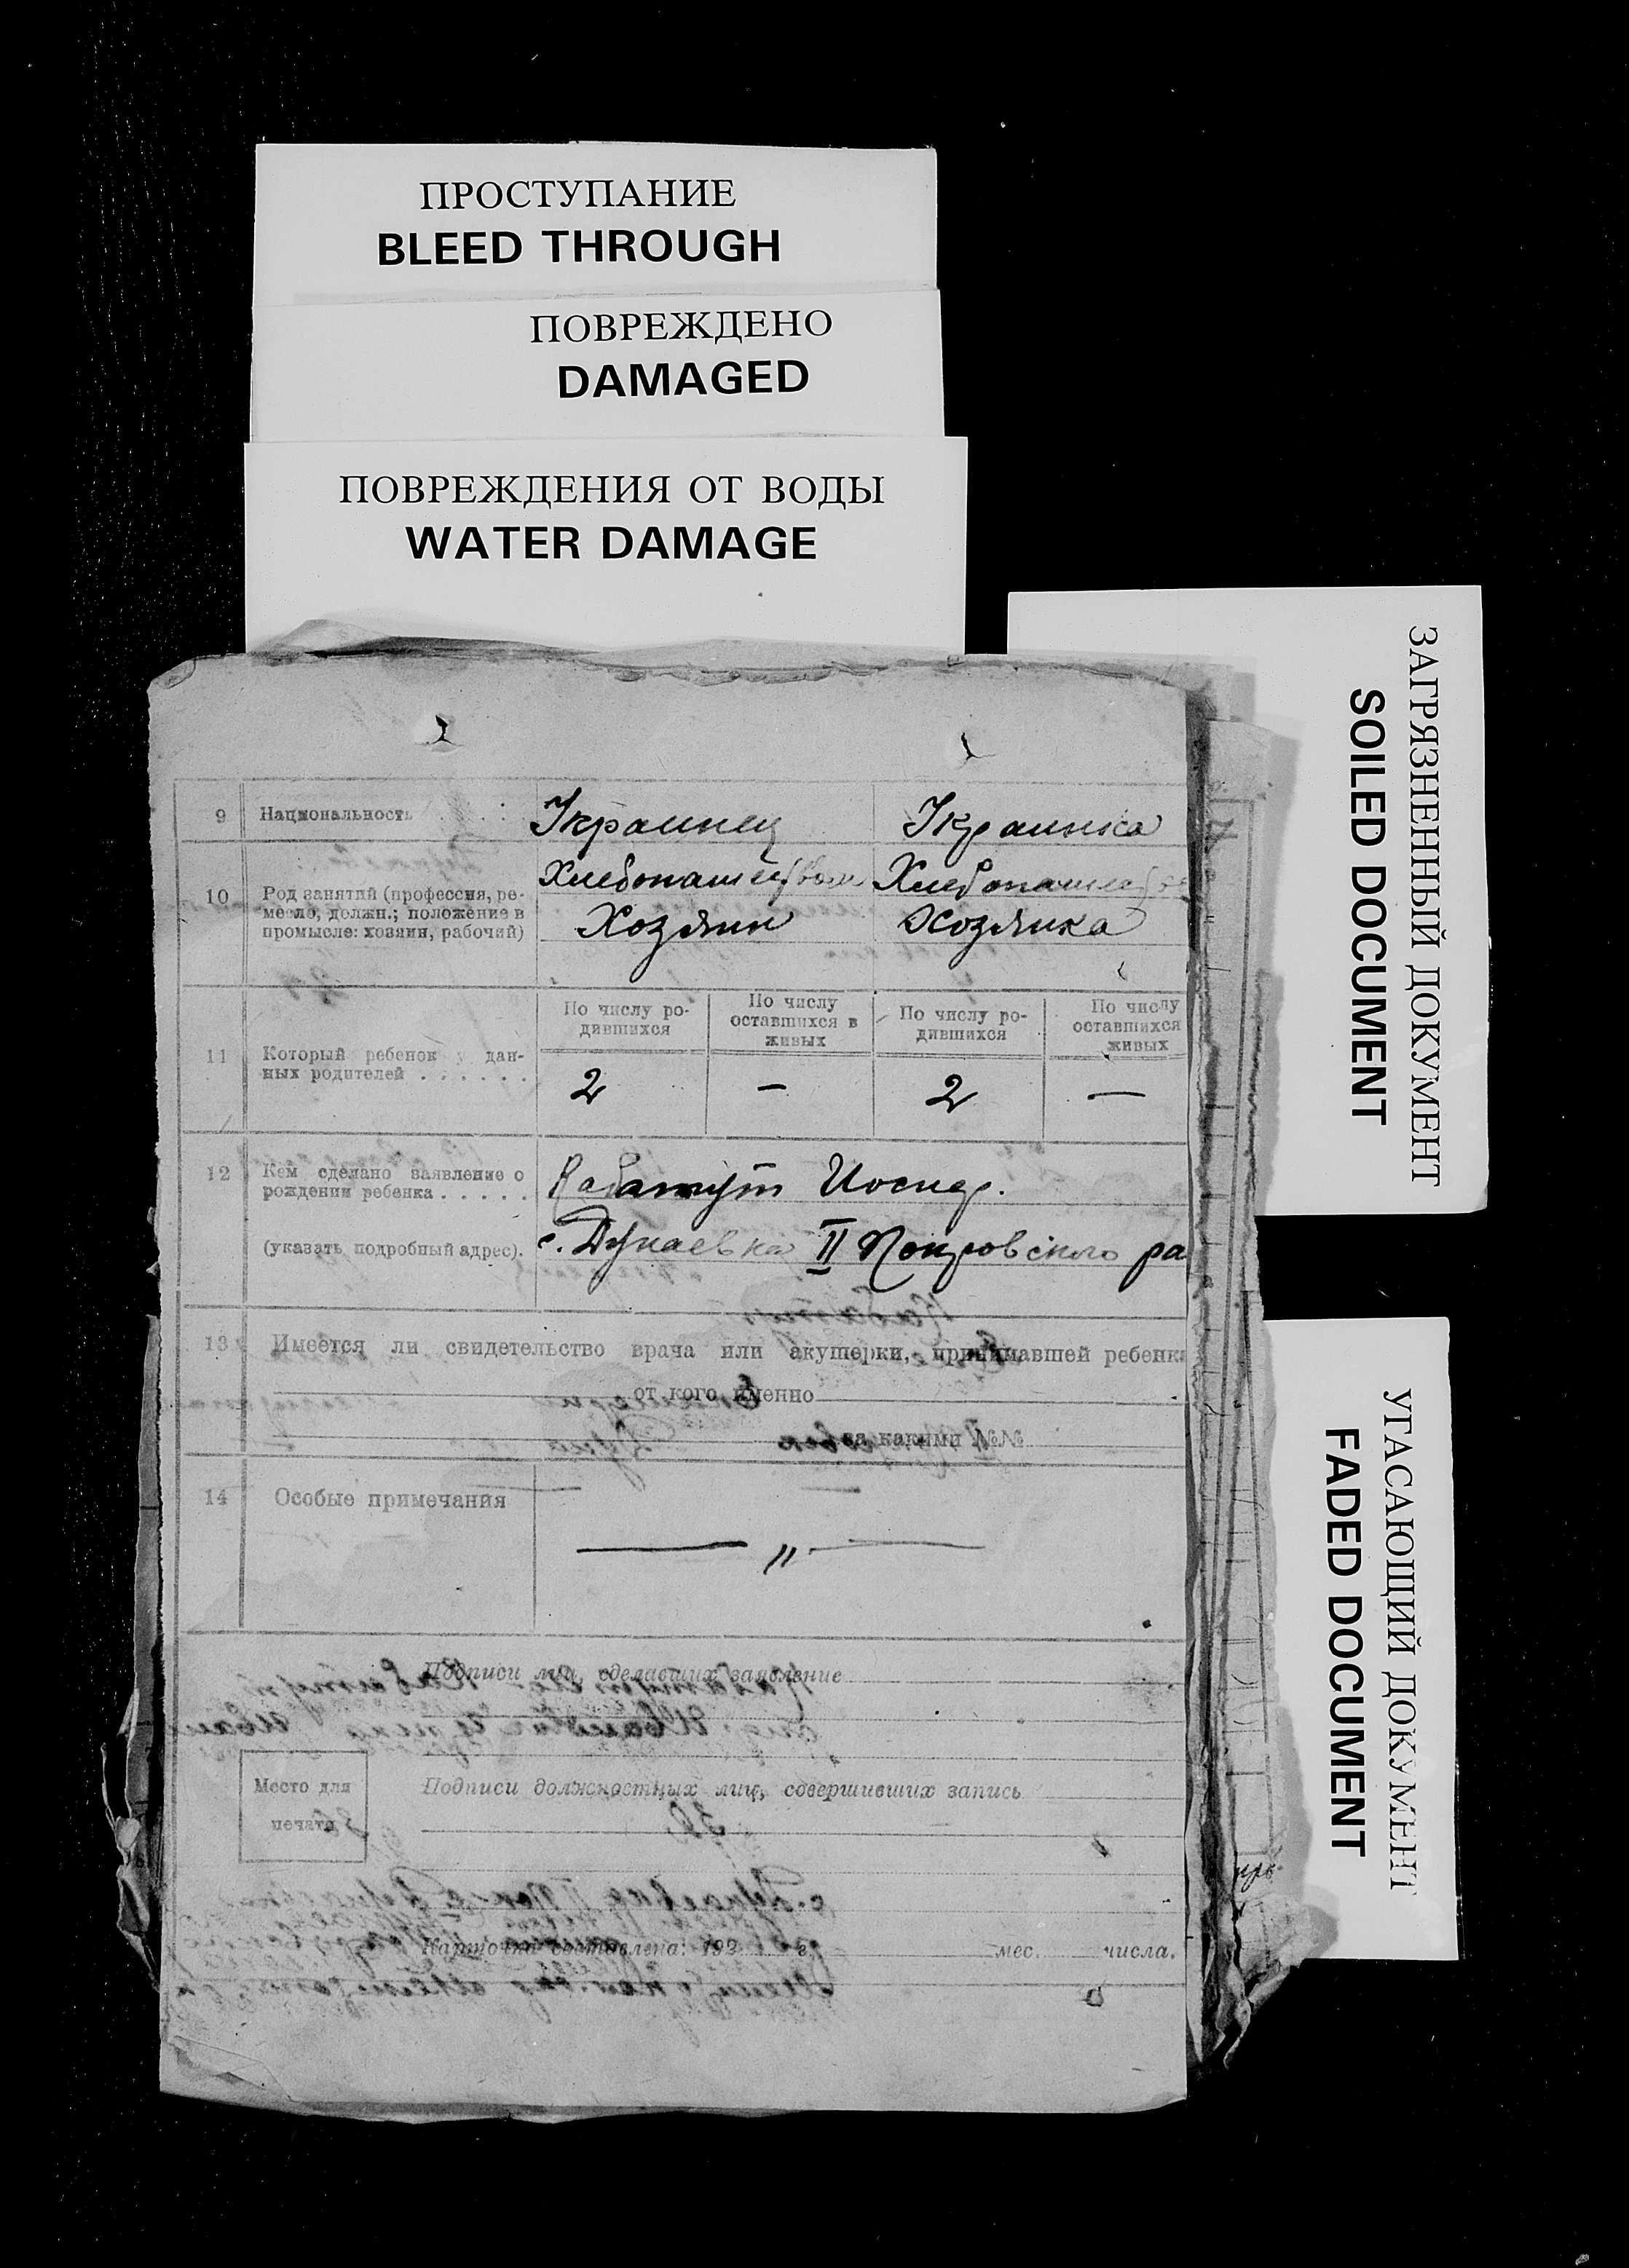 ПРОСТУПАНИЕ
BLEED THROUGH
ПОВРЕЖДЕНО
DAMAGED
ПОВРЕЖДЕНИЯ ОТ ВОДЫ
WATER DAMAGE
ЗАГРЯЗНЕННЫЙ ДОКУМЕНТ
SOILED DOCUMENT
УГАСАЮЩИЙ ДОКУМЕНТ
FADED DOCUMENT
9 Национальность Украинец Украинка
10 Род занятий (профессия, ре-
месло, должн.; положение в
промысле: хозяин, рабочий)
Хозяин Хозяйка
По числу ро-
дившихся
По числу
оставшихся в
живых
По числу ро-
дившихся
По числу
оставшихся
живых
11 Который ребенок у дан-
ных родителей . . . . . .
2 — 2 —
12 Кем сделано заявление о
рождении ребенка . . . . .
Иосиф.
(указать подробный адрес). с. Дунаевка II Покровского ра
13 Имеется ли свидетельство врача или акушерки, принимавшей ребенка
от кого именно
за какими №№
14 Особые примечания
— " —
Подписи лиц, сделавших заявление
Место для
печати
Подписи должностных лиц, совершивших запись
Карточка составлена: 193 г. мес. числа.